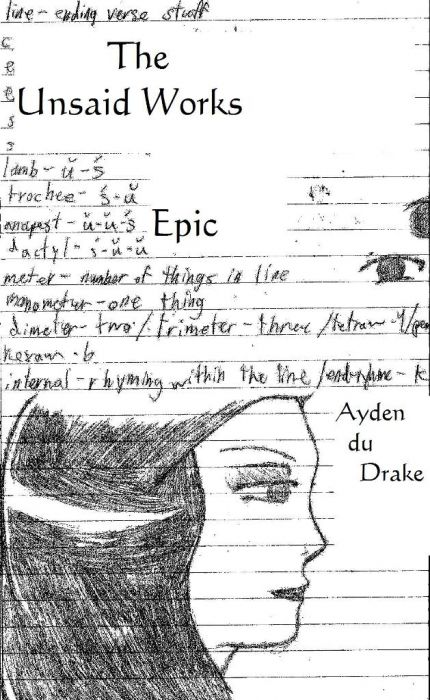 line - ending verse stuff
The
Unsaid Works
Iamb - ŭ - ś
trochee - ś - ŭ
anapest - ŭ - ŭ - ś
Epic
dactyl - ś - ŭ - ŭ
meter - number of things in line
monometer - one thing
dimeter - two / trimeter - three /
internal - rhyming within the line / end rhyme -
Ayden
du
Drake